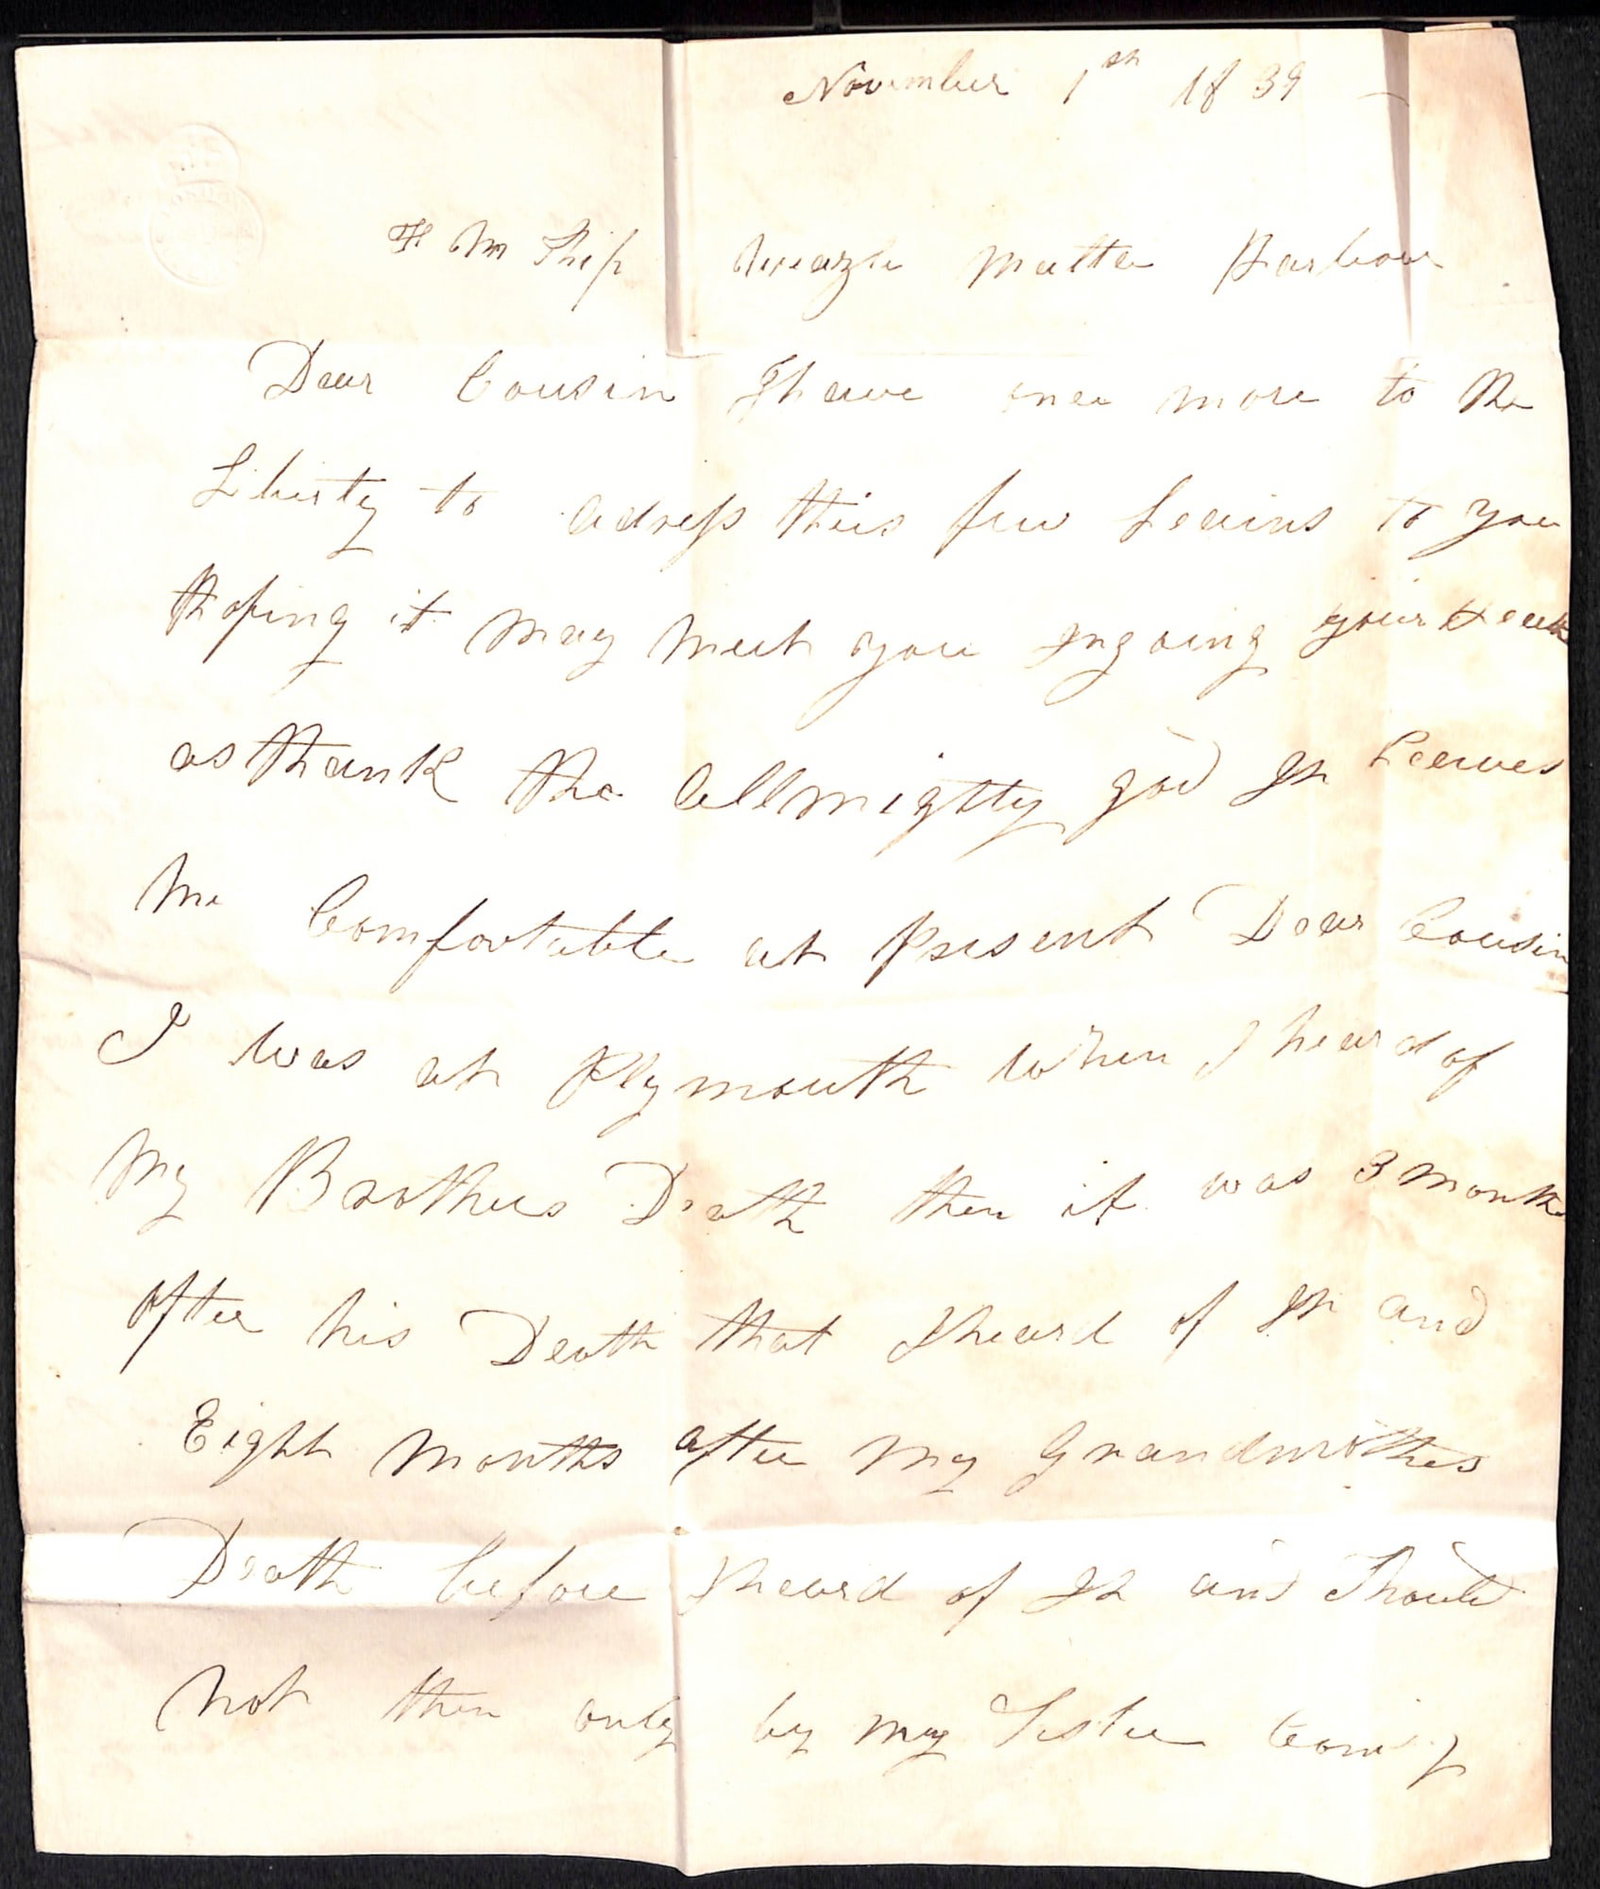 November 1st 1839
H M Ship Weazle Malta Harbour
Dear Cousin I have once more to the
Liberty to adress this few Leains to you
Hoping it may meet you Ingoing your Heath
as thank the Allmightty god It Leeves
Me Comfortable at Present Dear Cousin
I was at Plymouth When I heard of
My Brothers Death then it was 3 Months
after his Death that I heard of It and
Eight Months after My Grandmothes
Death before I heard of It and Should
Not then only by my Sister